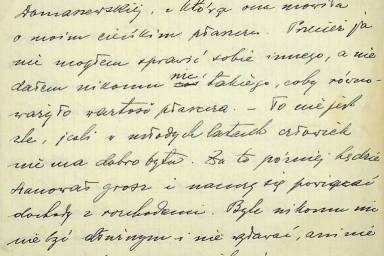 Domaszewskiej, z którą on mówiła
o moim cieńkim płaszczu. Przecież ja
nie mogłem sprawić sobie innego, a nie
dałem nikomu nic takiego, coby równo-
ważyło wartość płaszcza. – To nie jest
złe, jeśli w młodych latach człowiek
nie ma dobrobytu. Za to później będzie
szanował grosz i nauczy się powiązać
dochody z rozchodami. Byle nikomu nie
nie być dłużnym i nie wydawać, ani nie